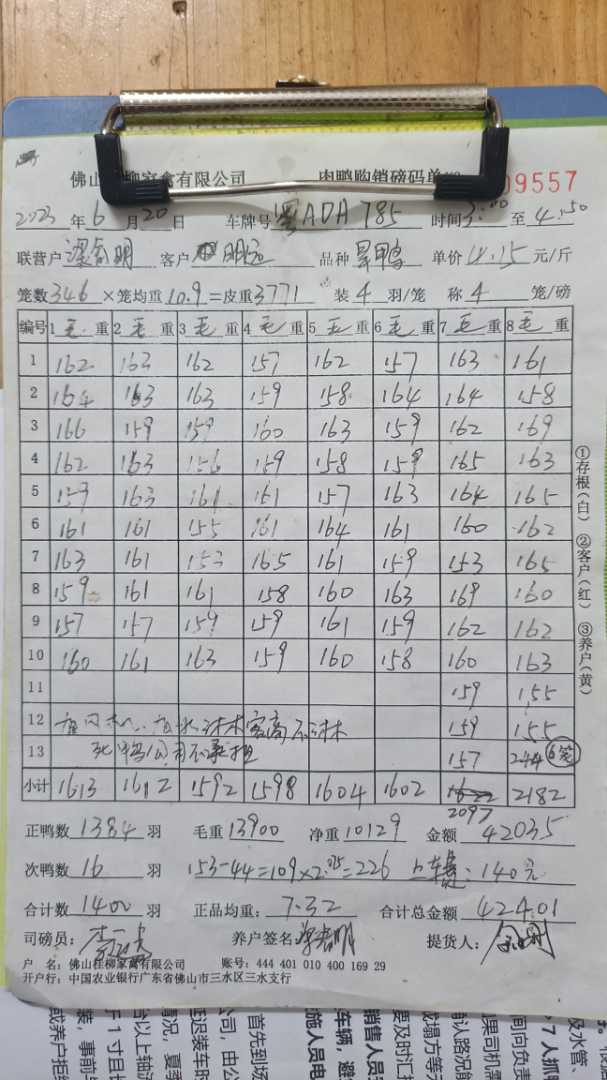 佛山 柳家禽有限公司 肉鸭购销磅码单 09557
2023 年 6 月 20 日 车牌号 粤ADA 785 时间 3:00 至 4:50
联营户 客户 明运 品种 旱鸭 单价 4.15 元/斤
笼数 346 ×笼均重 10.9 =皮重 3771 装 4 羽/笼 称 4 笼/磅
编号 1 毛 重 2 毛 重 3 毛 重 4 毛 重 5 毛 重 6 毛 重 7 毛 重 8 毛 重
1 162 163 162 157 162 157 163 161
2 164 163 163 159 158 164 164 158
3 166 159 159 160 163 159 162 169
4 162 163 156 159 158 159 165 163
5 159 163 161 161 157 163 164 165
6 161 161 155 161 164 161 160 162
7 163 161 153 165 161 159 153 165
8 159 161 161 158 160 163 169 160
9 157 157 159 159 161 159 162 162
10 160 161 163 159 160 158 160 163
11 159 155
12 159 155
13 公司不承担 157 244 6笼
小计 1613 1612 1592 1598 1604 1602 2097 2182
正鸭数 1384 羽 毛重 13900 净重 10129 金额 42035
次鸭数 16 羽 153-44=109×2.05=226 上车费:140元
合计数 1400 羽 正品均重: 7.32 合计总金额 42401
司磅员: 养户签名: 提货人:
户 名: 佛山桂柳家禽有限公司 账号: 444 401 010 400 169 29
开户行: 中国农业银行广东省佛山市三水区三水支行
①存根(白) ②客户(红) ③养户(黄)